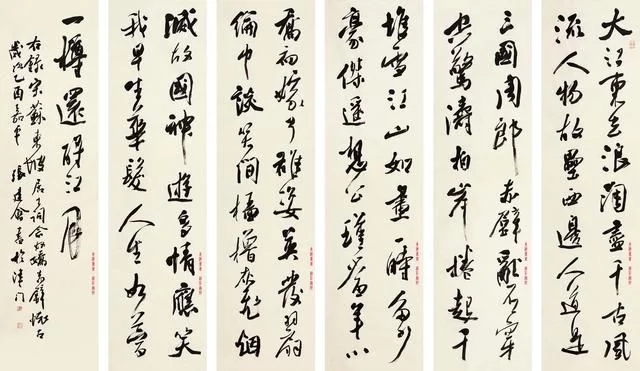 大江東去浪淘盡千古風
流人物故壘西邊人道是
三國周郎赤壁亂石穿
空驚濤拍岸捲起千
堆雪江山如畫一時多少
豪傑遥想公瑾當年小
喬初嫁了雄姿英發羽扇
綸巾談笑間檣櫓灰飛烟
滅故國神遊多情應笑
我早生華髮人生如夢
一樽還酹江月
右録宋蘇東坡居士詞念奴嬌赤壁懷古
歲次乙酉嘉平張建會書於津門